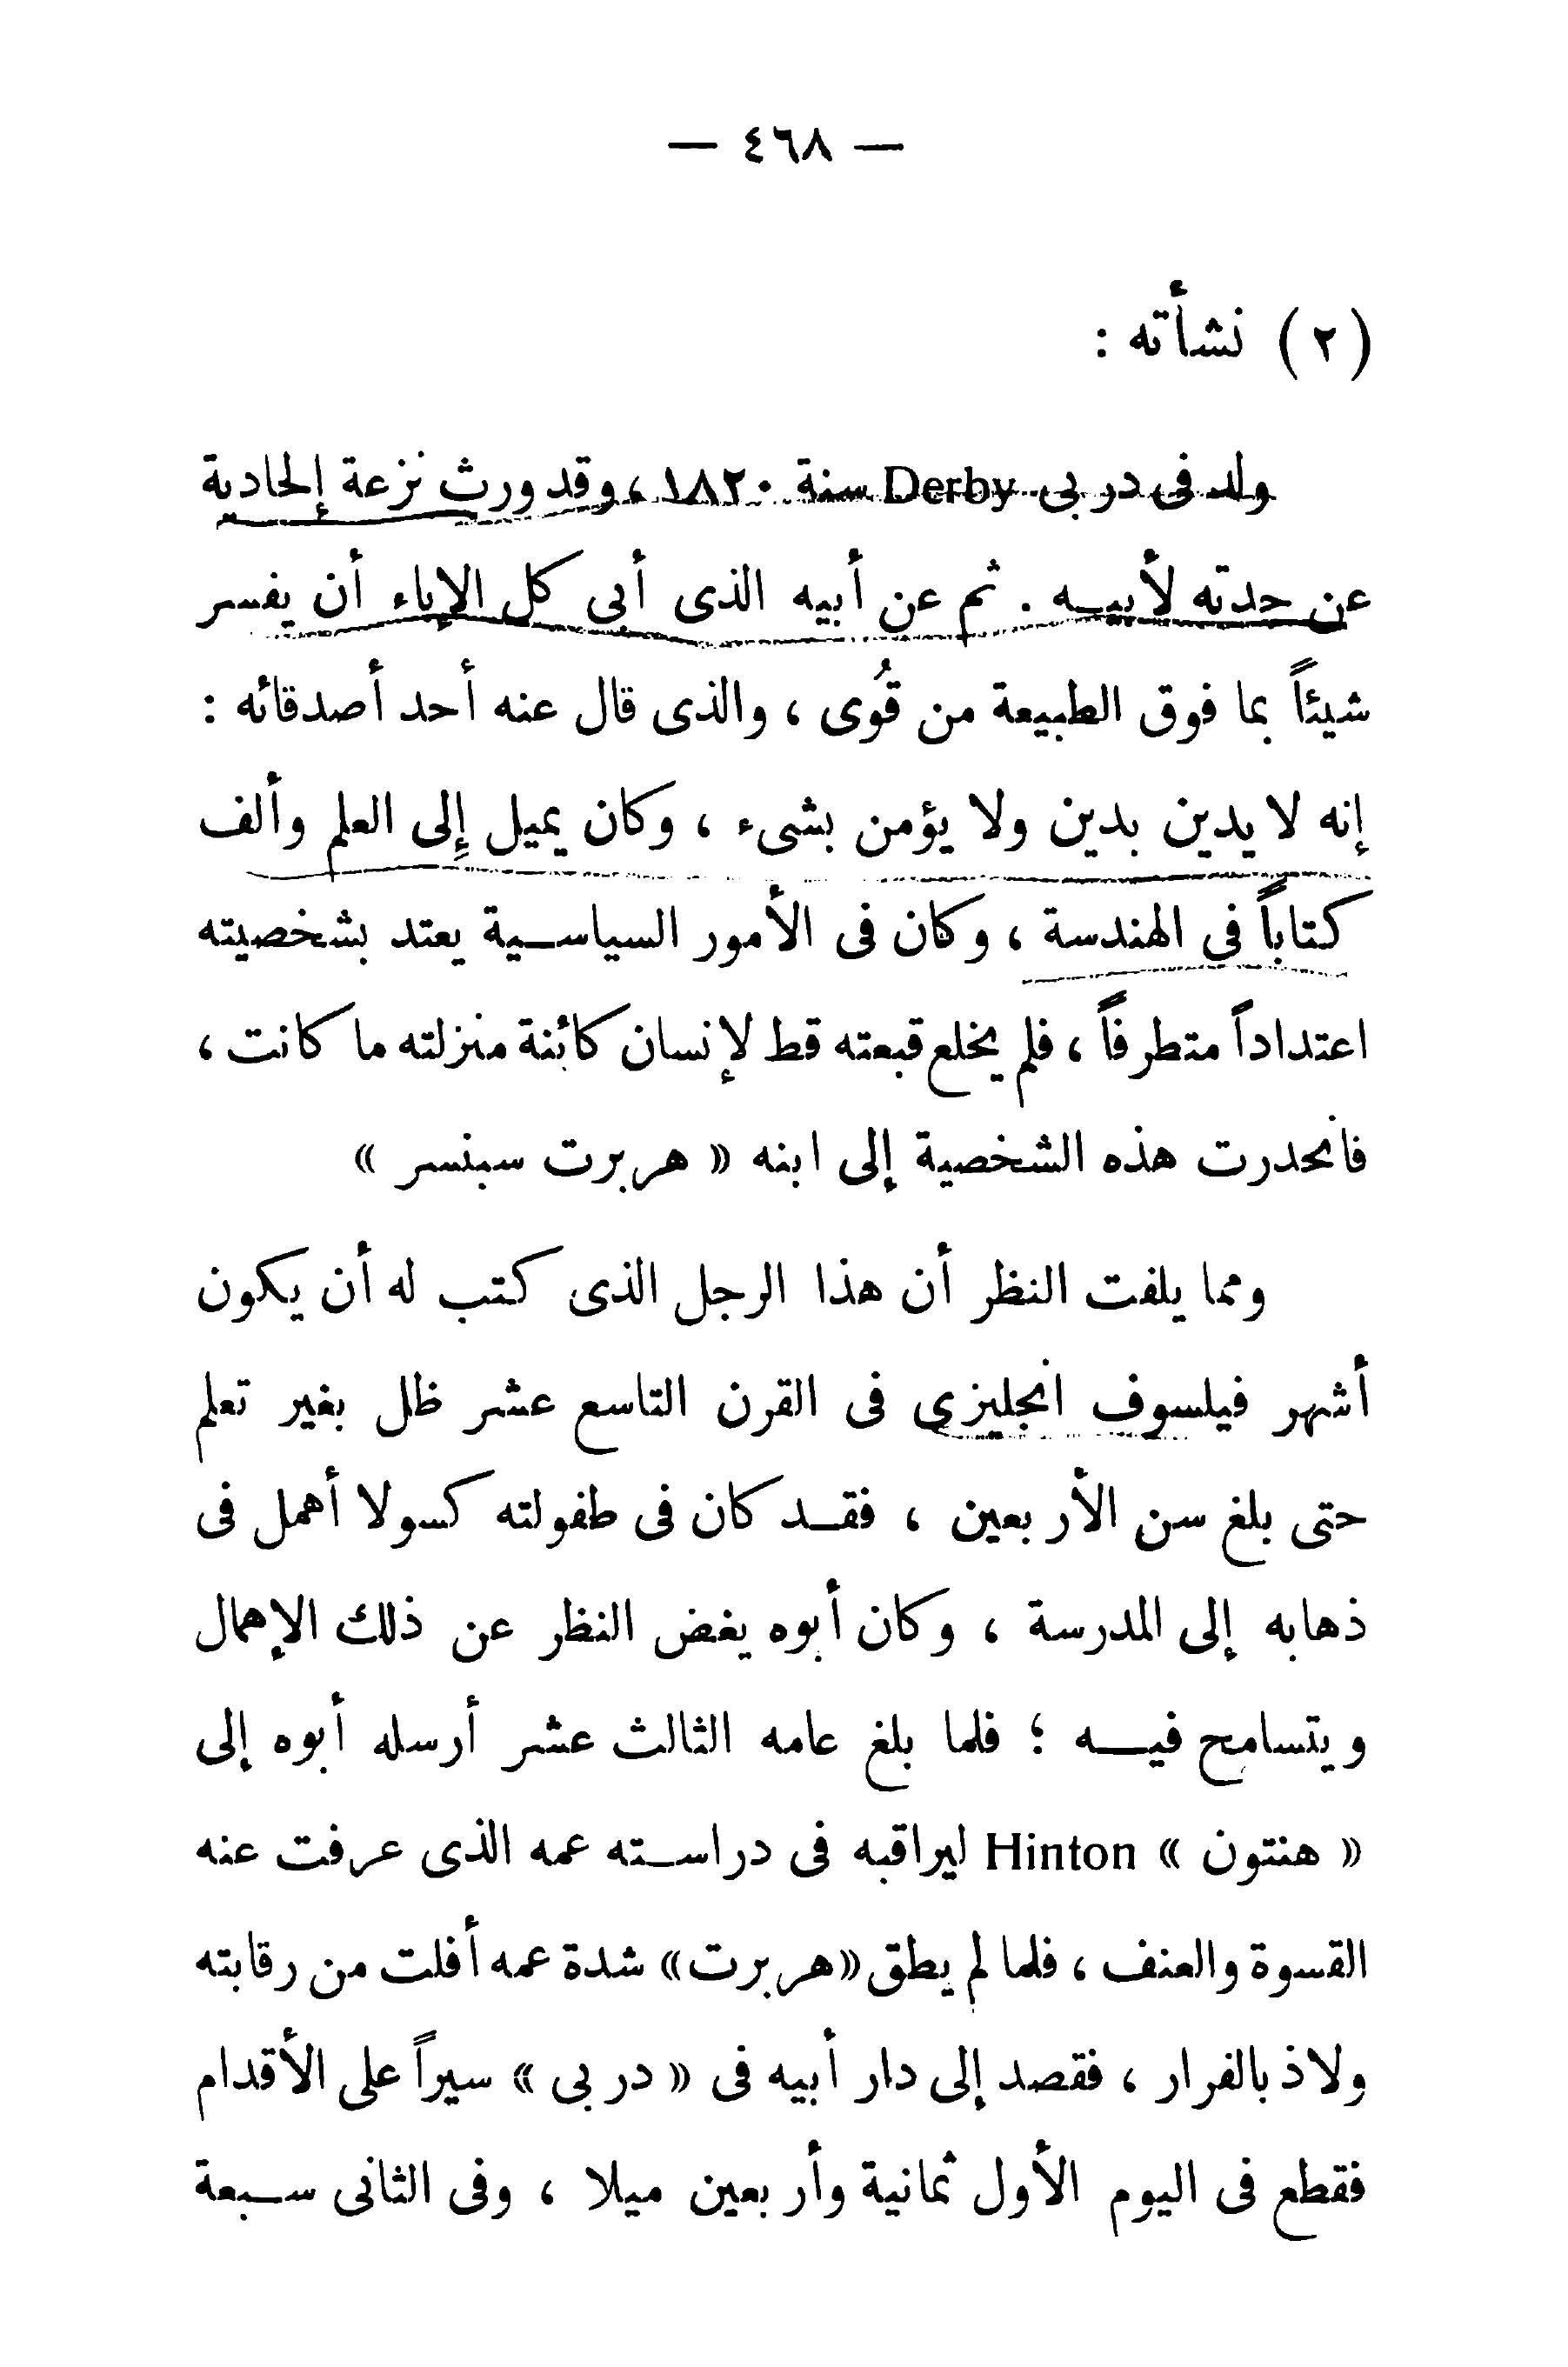 — ٤٦٨ —
(٢) نشأته :
ولد فى دربى Derby سنة ١٨٢٠ ، وقد ورث نزعة إلحادية
عن جدته لأبيه . ثم عن أبيه الذى أبى كل الإباء أن يفسر
شيئاً بما فوق الطبيعة من قُوى ، والذى قال عنه أحد أصدقائه :
إنه لا يدين بدين ولا يؤمن بشىء ، وكان يميل إلى العلم وألف
كتاباً فى الهندسة ، وكان فى الأمور السياسية يعتد بشخصيته
اعتداداً متطرفاً ، فلم يخلع قبعته قط لإنسان كائنة منزلته ما كانت ،
فانحدرت هذه الشخصية إلى ابنه « هربرت سبنسر »
ومما يلفت النظر أن هذا الرجل الذى كتب له أن يكون
أشهر فيلسوف انجليزى فى القرن التاسع عشر ظل بغير تعلم
حتى بلغ سن الأربعين ، فقد كان فى طفولته كسولا أهمل فى
ذهابه إلى المدرسة ، وكان أبوه يغض النظر عن ذلك الإهمال
ويتسامح فيه ؛ فلما بلغ عامه الثالث عشر أرسله أبوه إلى
« هنتون » Hinton ليراقبه فى دراسته عمه الذى عرفت عنه
القسوة والعنف ، فلما لم يطق «هربرت» شدة عمه أفلت من رقابته
ولاذ بالفرار ، فقصد إلى دار أبيه فى « دربى » سيراً على الأقدام
فقطع فى اليوم الأول ثمانية وأربعين ميلا ، وفى الثانى سبعة